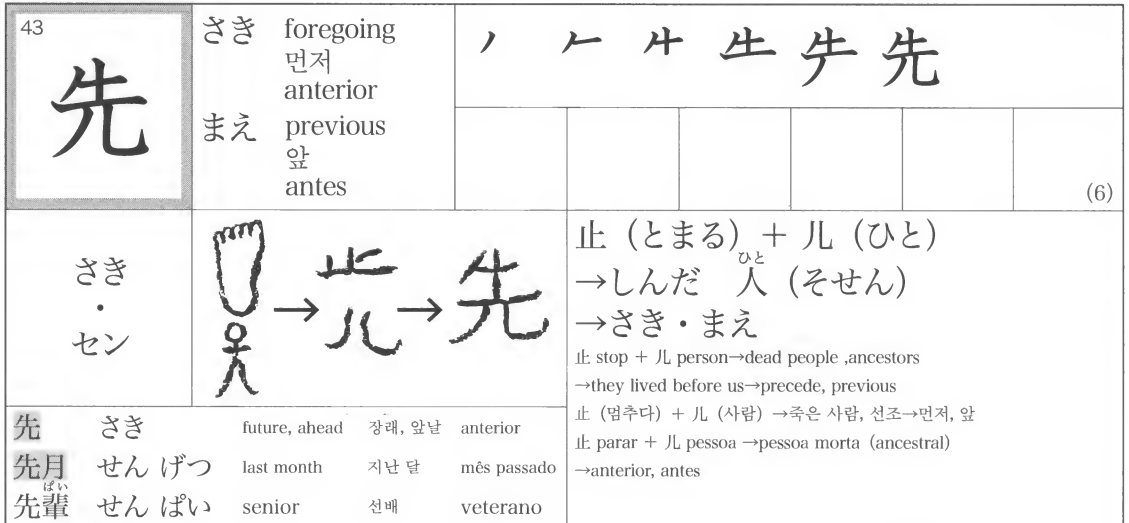 43
先
さき foregoing
먼저
anterior
まえ previous
앞
antes
(6)
さき
・
セン
先
止（とまる）＋ 儿（ひと）
→しんだ 人（そせん）
ひと
→さき・まえ
止 stop + 儿 person→dead people ,ancestors
→they lived before us→precede, previous
止（멈추다）+ 儿（사람）→죽은 사람, 선조→먼저, 앞
止 parar + 儿 pessoa →pessoa morta（ancestral）
→anterior, antes
先 さき future, ahead 장래, 앞날 anterior
先月 せん げつ last month 지난 달 mês passado
ぱい
先輩 せん ぱい senior 선배 veterano